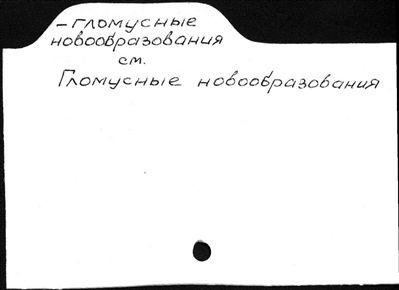 - гломусные
новообразования
см.
Гломусные новообразования